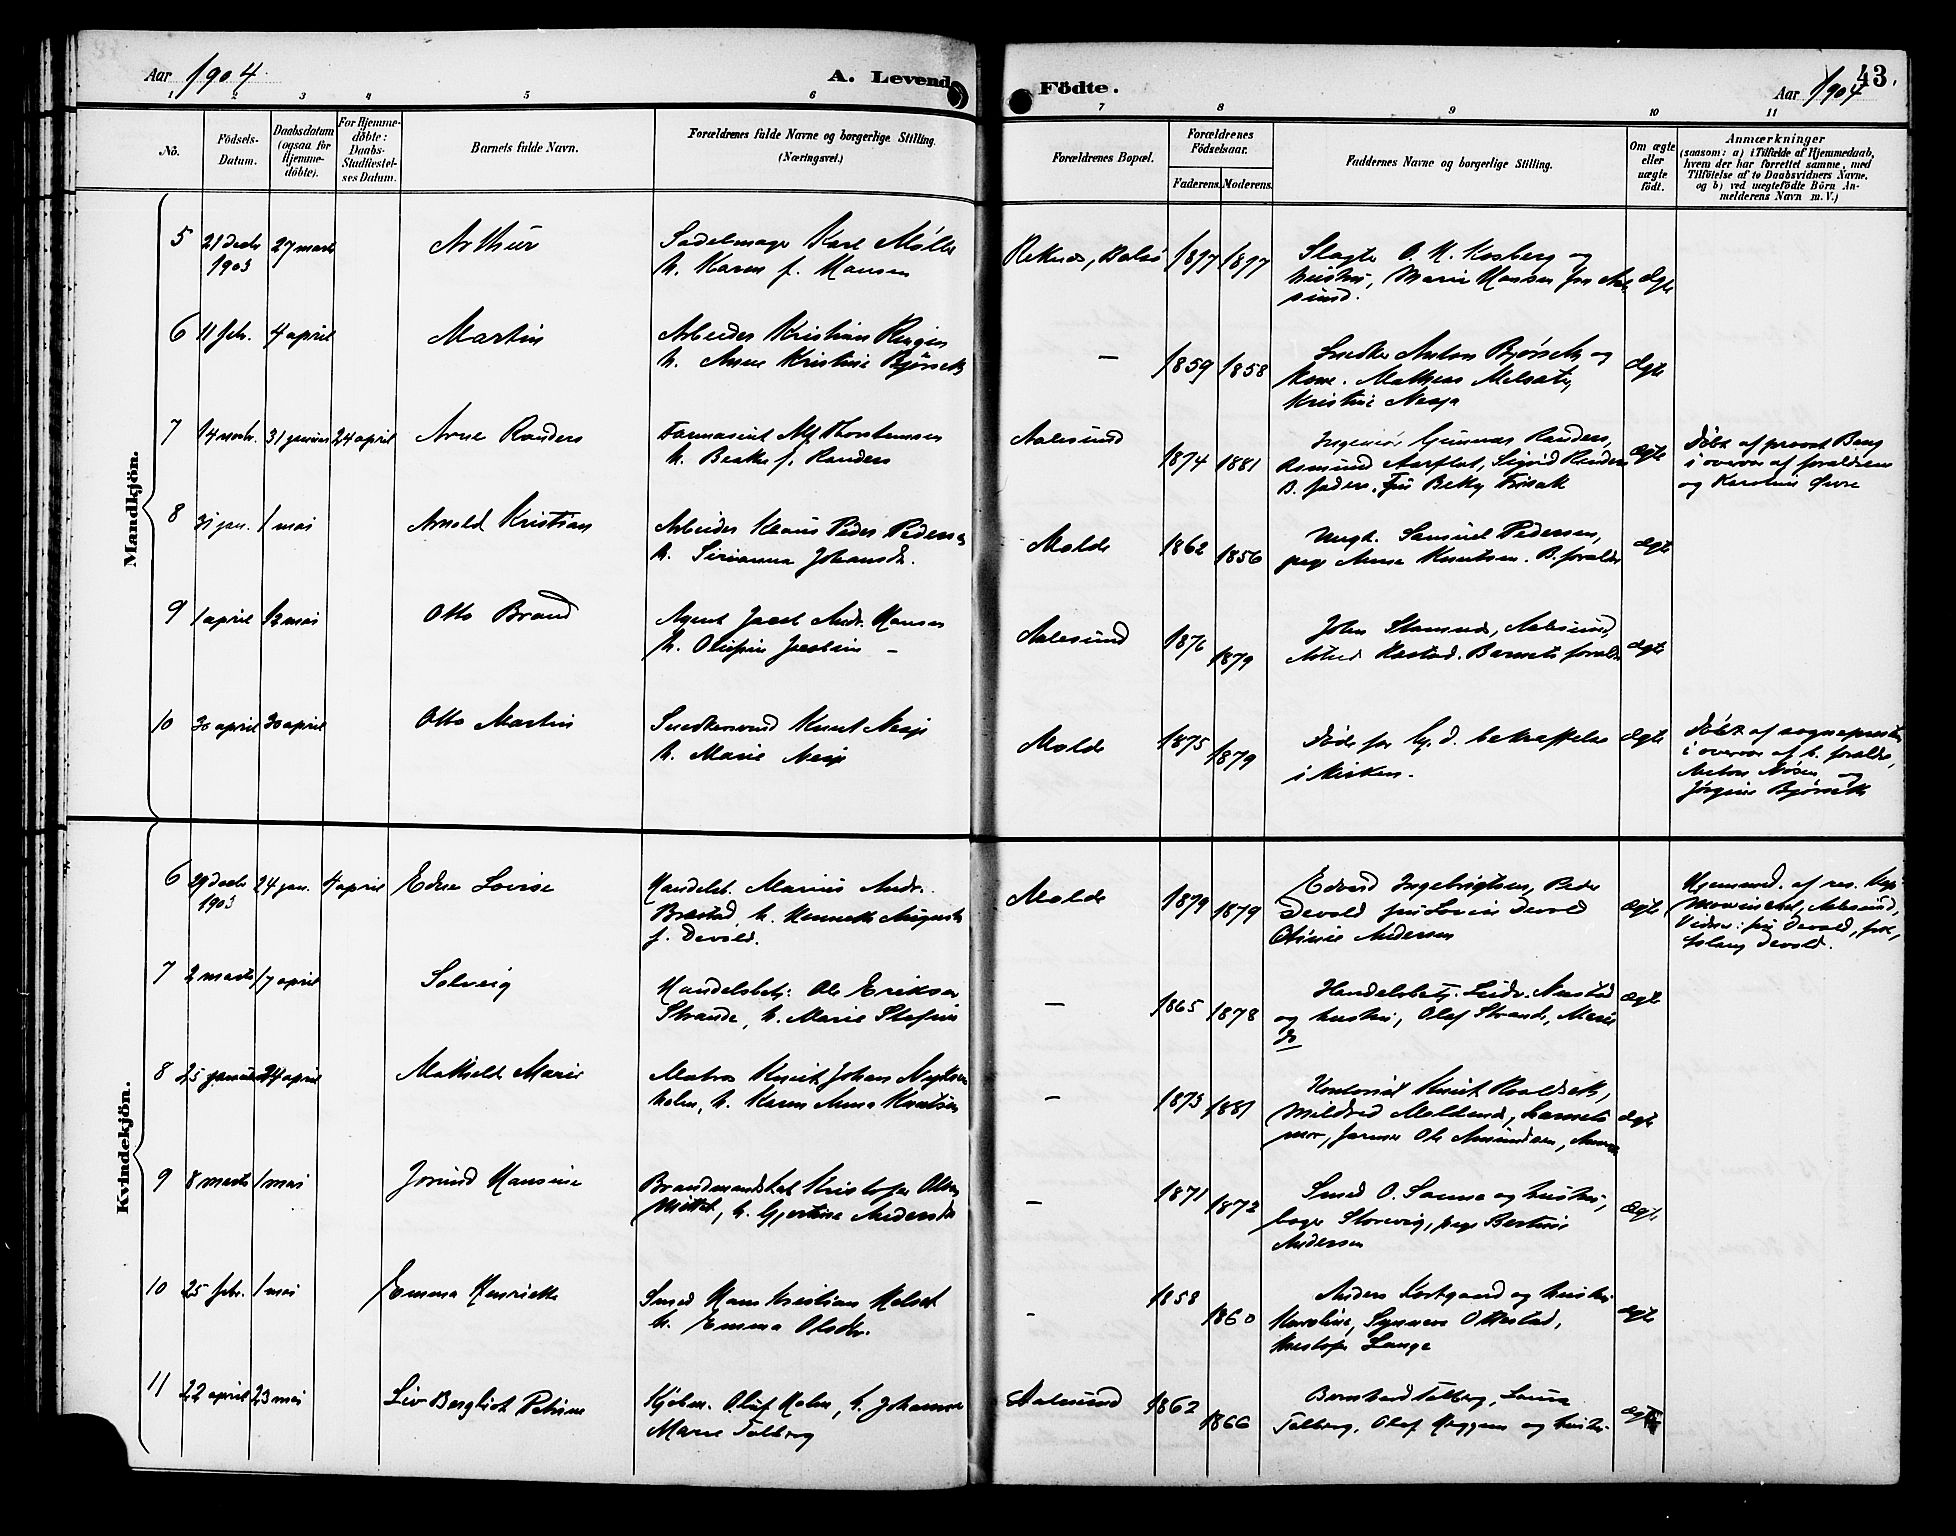 Aar 1904.
A. Levende
Födte.
43.
Aar 1904
1 2 3 4 5 6
7 8 9 10 11
Nö.
Födsels-Datum.
Daabsdatum (ogsaa for Hjemme-döbte).
For Hjemme-döbte: Daabs-Stadfæstel-ses Datum.
Barnets fulde Navn.
Forældrenes fulde Navne og borgerlige Stilling.
(Næringsvei.)
Forældrenes Bopæl.
Forældrenes Födselsaar.
Faderens. Moderens.
Faddernes Navne og borgerlige Stilling.
Om ægte eller uægte födt.
Anmærkninger
(saasom: a) i Tilfælde af Hjemmedaab,
hvem der har forrettet samme, med
Tilföielse af to Daabsvidners Navne.
og b) ved uægtefödte Börn An-
melderens Navn m. V.)
Mandkjön.
5 21 decb 1903 27 marts Arthur
Sadelmager Karl Møller
h. Karen f. Hansen
Reknes, Bolsø 1877 1877
Slagter O. H. Kosberg og
hustru, Marie Hansen
ægte
6 11 febr. 4 april Martin
Arbeider Kristian
h. Anne Kristine Bjørseth
— 1859 1858
Snedker Anton Bjørseth og
kone. Mathias
Kristine Nesje
ægte
7 14 novbr. 31 januar 24 april Arne Randers
Farmaceut Alf Thorstensen
h. Beathe f. Randers
Aalesund 1874 1881
Ingeniør Gunnar Randers,
Rasmund Aarflot, Sigrid Randers
B. fader. Fru Betty
ægte
Døbt af provst Bang
i overvær af forældrene
og Karoline Øvre
8 31 jan. 1 mai Arnold Kristian
Arbeider Klaus Peder Pedersen
h. Serianna Johansdt.
Molde 1862 1856
Ungk. Samuel Pedersen,
pige Anna Knutsen. B. forældre
ægte
9 1 april 12 mai Otto Brand
Agent Jacob Andr. Hansen
h. Olufine Jacobine —
Aalesund 1876 1879
John Stamnes, Aalesund,
Astrid Hestad. Barnets forældre
ægte
10 30 april 30 april Otto Martin
Snedkersvend Knut Nesje
h. Marie Nesje
Molde 1875 1879
Døde før hj. d. bekræftelse
i kirken.
ægte
Døbt af sogneprest
i overvær af b. forældre,
Anton og
Jørgine Bjørseth
Kvindekjön.
6 29 decb 1903 24 jan. 4 april Edne Lovise
Handelsb. Marius Andr.
Brastad, h. Henriette Auguste
f. Devold.
Molde 1879 1879
Edvard Ingebrigtsen, Peder
Devold fru Lovise Devold
Oline Andersen
ægte
Hjemmed. af res. kap.
Mowinckel, Aalesund,
Vidner: fru Devold, frk.
Aslaug Devold.
7 2 marts 17 april Solveig
Handelsbetj. Ole Eriksen
Strande, h. Marie Stefine
— 1865 1878
Handelsbetj. Ludv. Nerstad
og hustru, Olaf Strande, Marie
do
ægte
8 25 januar 24 april Mathilde Marie
Matros Knut Johan
Holm, h. Karen Anna Knutsen
— 1873 1881
Kontorist Knut
Mildred Moldenæs, barnets
mor, Ole Amundsen,
ægte
9 8 marts 1 mai Jorund Hansine
Brandmandskab Kristofer Olsen
Mittet, h. Gjertine Andersdt
— 1871 1872
Smed O. Sanne og hustru,
bager Storevig, pige Bertine
Andersen
ægte
10 25 febr. 1 mai Emma Henriette
Smed Hans Kristian Holset
h. Emma Olsdtr.
- 1858 1860
Anders Kortgaard og hustru
Karoline, Synnøve Ottestad,
Kristofer Lange
ægte
11 22 april 23 mai Liv Bergliot Petrine
Kjøbm. Oluf Holm, h. Johanne
Marie Tolberg
Aalesund 1862 1866
Bernhard Tolberg, Laura
Tolberg, Olaf Heggem og hustru
ægte